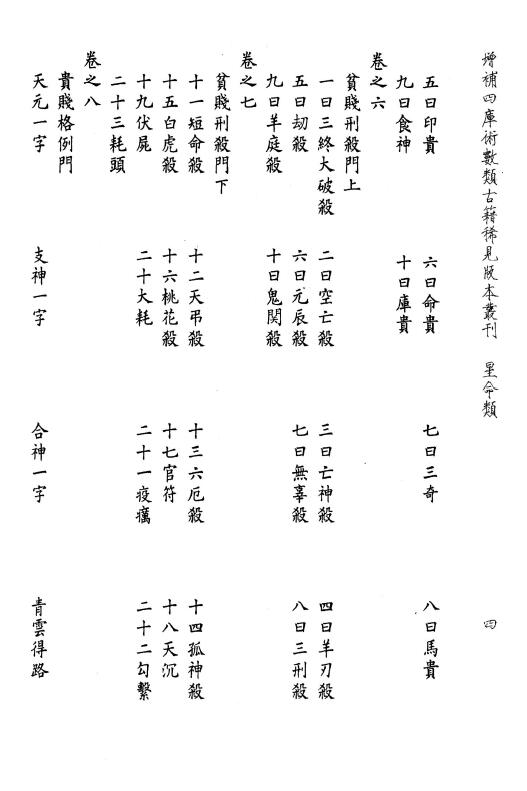 增補四庫術數類古籍稀見版本叢刊 星命類 四
五曰印貴 六曰命貴 七曰三奇 八曰馬貴
九曰食神 十曰庫貴
卷之六
貧賤刑殺門上
一曰三終大破殺 二曰空亡殺 三曰亡神殺 四曰羊刃殺
五曰刧殺 六曰元辰殺 七曰無辜殺 八曰三刑殺
九曰羊庭殺 十曰鬼関殺
卷之七
貧賤刑殺門下
十一短命殺 十二天弔殺 十三六厄殺 十四孤神殺
十五白虎殺 十六桃花殺 十七官符 十八天沉
十九伏屍 二十大耗 二十一疫癘 二十二勾繫
二十三耗頭
卷之八
貴賤格例門
天元一字 支神一字 合神一字 青雲得路